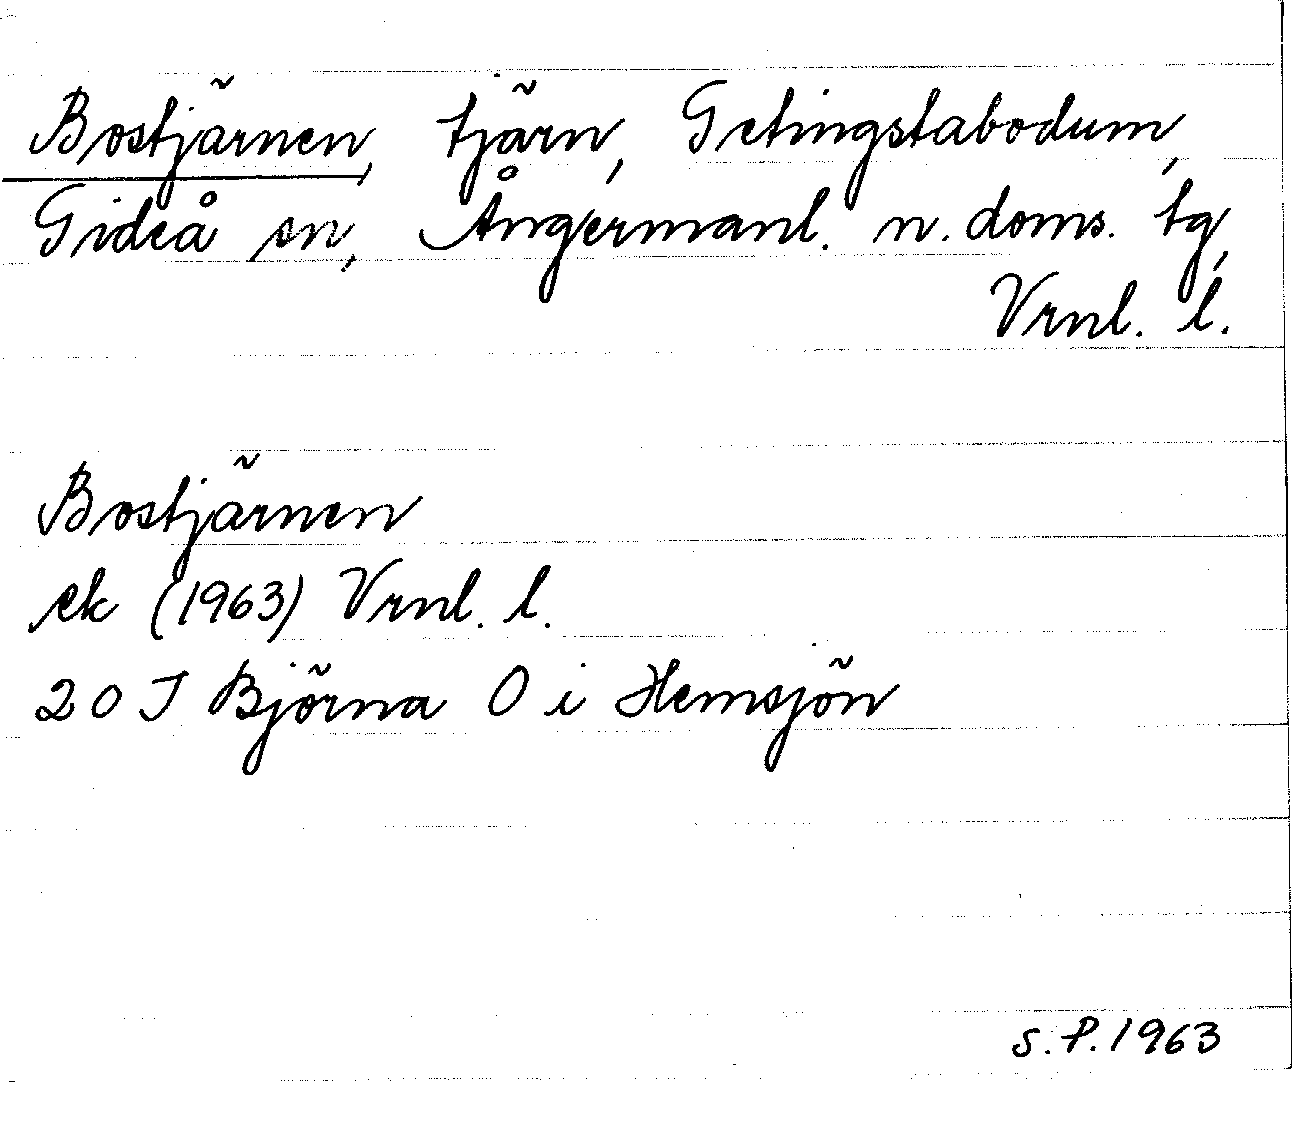 Bostjärnen, tjärn, Getingstabodum,
Gideå sn, Ångermanl. n. doms. tg,
Vrnl. l.
Bostjärnen
ek (1963) Vrnl. l.
20 J Björna O i Hemsjön
S.P. 1963